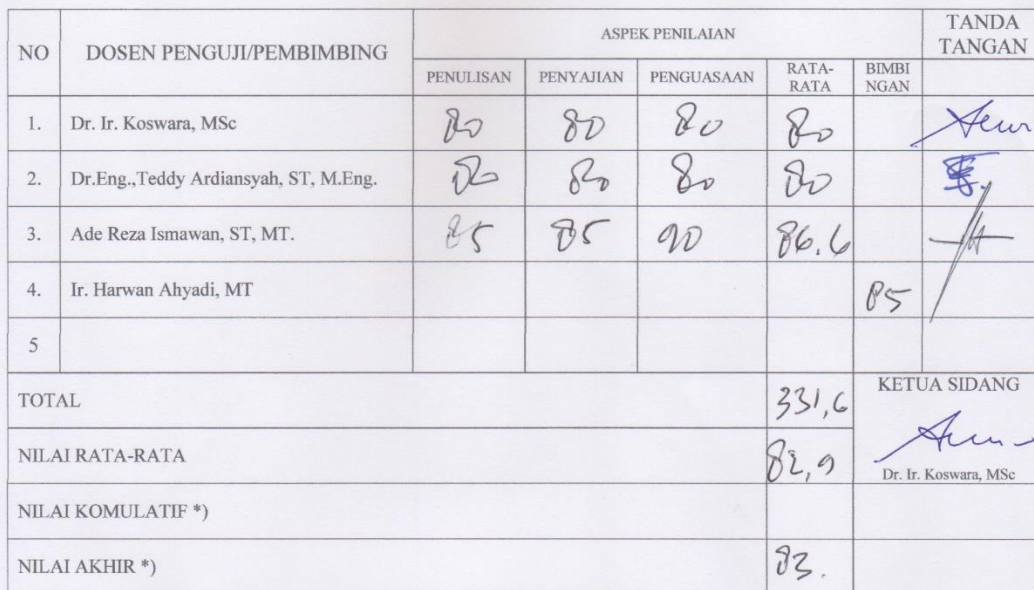 NO DOSEN PENGUJI/PEMBIMBING ASPEK PENILAIAN TANDA TANGAN
PENULISAN PENYAJIAN PENGUASAAN RATA-RATA BIMBINGAN
1. Dr. Ir. Koswara, MSc 80 80 80 80
2. Dr.Eng.,Teddy Ardiansyah, ST, M.Eng. 80 80 80 80
3. Ade Reza Ismawan, ST, MT. 85 85 90 86,6
4. Ir. Harwan Ahyadi, MT 85
5
TOTAL 331,6 KETUA SIDANG
NILAI RATA-RATA 82,9
Dr. Ir. Koswara, MSc
NILAI KOMULATIF *)
NILAI AKHIR *) 83.